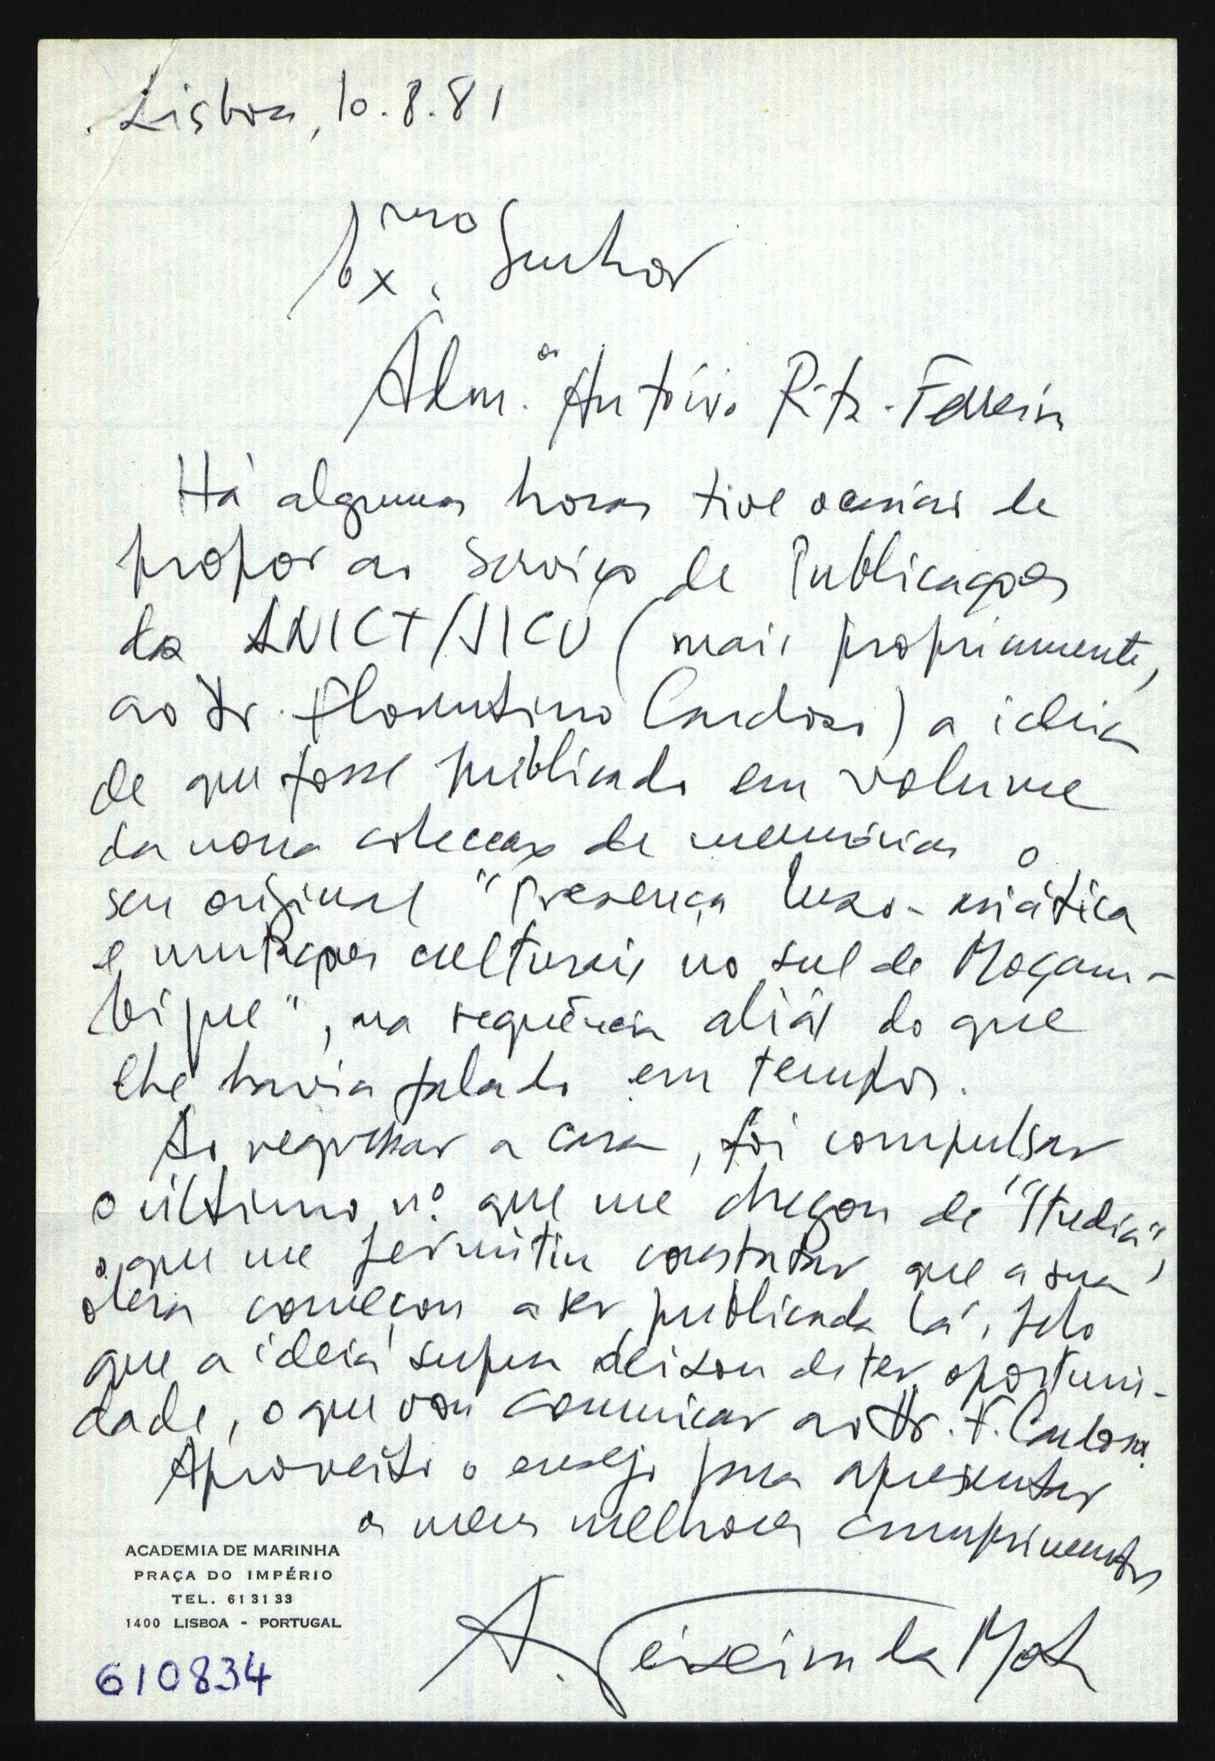 Lisboa, 10.8.81
Ex.mo Senhor
Adm.or António Rita-Ferreira
Há algumas horas tive ocasião de
propor ao Serviço de Publicações
da LNICT/JICU (mais propriamente,
ao Dr. Florentino Cardoso) a ideia
de que fosse publicado em volume
da nossa colecção de memórias o
seu original "Presença luso-asiática
e mutações culturais no sul de Moçam-
bique", na sequência aliás do que
lhe havia falado em tempos.
Ao regressar a casa, foi compulsar
o último nº que me chegou de "Studia",
o que me permitiu constatar que a sua
obra começou a ser publicada lá, pelo
que a ideia supra deixou de ter oportuni-
dade, o que vou comunicar ao Dr. F. Cardoso.
Aproveito o ensejo para apresentar
os meus melhores cumprimentos
A. Teixeira da Mota
ACADEMIA DE MARINHA
PRAÇA DO IMPÉRIO
TEL. 61 31 33
1400 LISBOA - PORTUGAL
610834